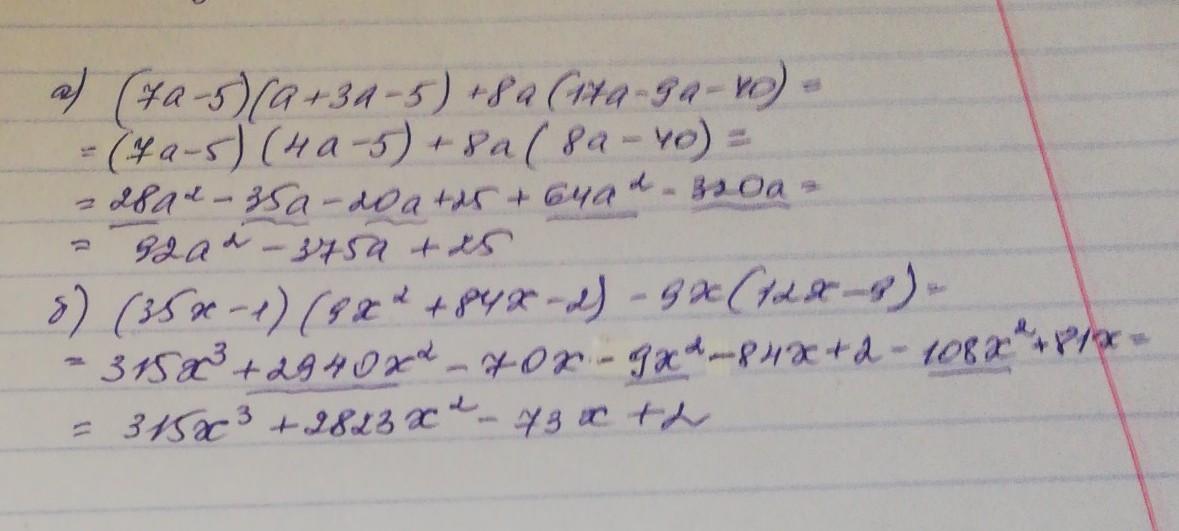 а) (7a-5)(a+3a-5)+8a(17a-9a-40)=
=(7a-5)(4a-5)+8a(8a-40)=
=28a²-35a-20a+25+64a²-320a=
= 92a²-375a+25
б) (35x-1)(9x²+84x-2)-9x(12x-9)=
=315x³+2940x²-70x-9x²-84x+2-108x²+81x=
= 315x³+2823x²-73x+2